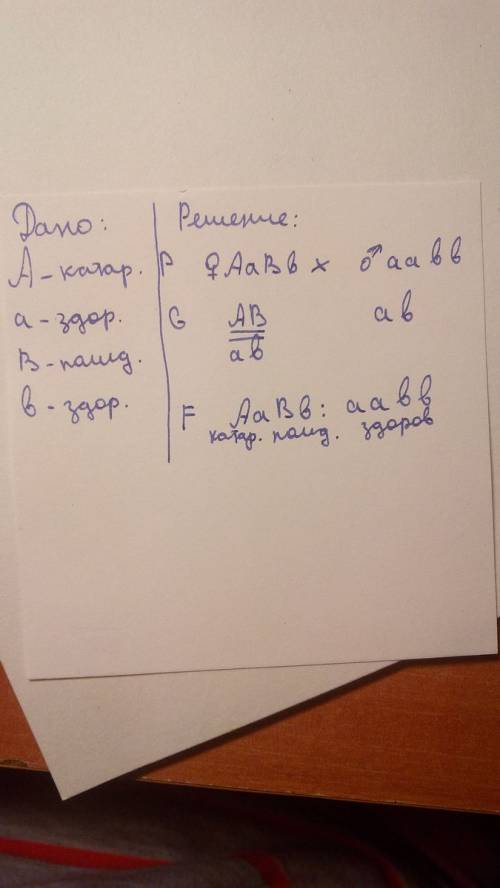 Дано:
А - катар.
а - здор.
В - полид.
в - здор.
Решение:
Р ♀ АаВв × ♂ аавв
G АВ ав
ав
F АаВв : аавв
катар. полид. здоров